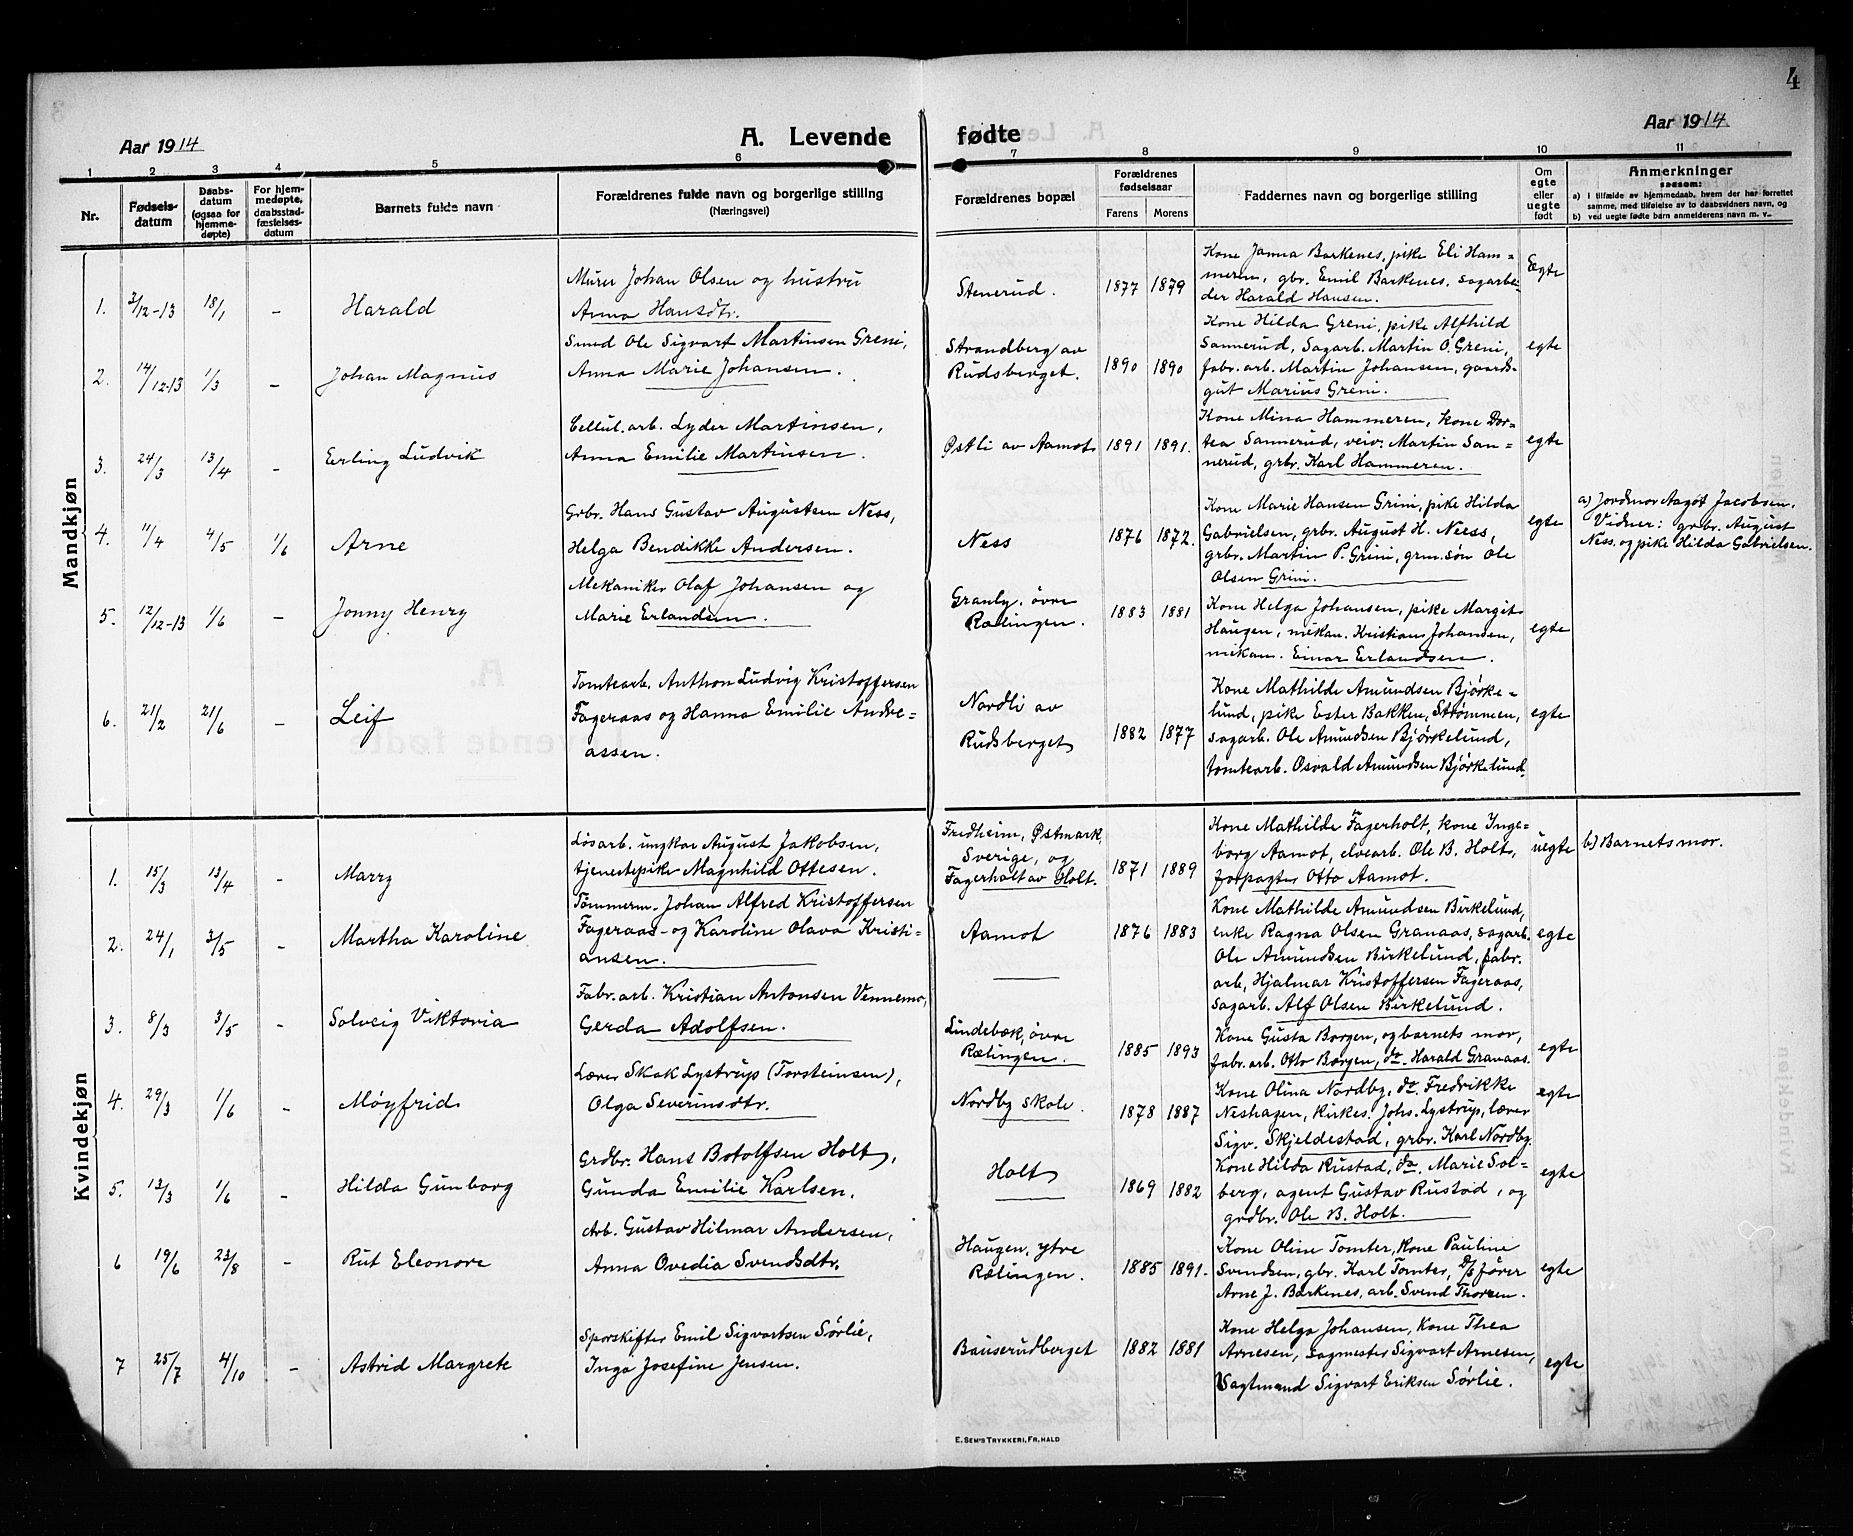 4
Aar 1914
A. Levende
fødte
Aar 1914
1 2 3 4 5 6 7 8 9 10 11
Nr.
Fødsels-
datum
Daabs-
datum
(ogsaa for
hjemme-
døpte)
For hjem-
medøpte,
daabsstad-
fæstelses-
datum
Barnets fulde navn
Forældrenes fulde navn og borgerlige stilling
(Næringsvei)
Forældrenes bopæl
Forældrenes
fødselsaar
Farens Morens
Faddernes navn og borgerlige stilling
Om
egte
eller
uegte
født
Anmerkninger
saasom:
a) I tilfælde av hjemmedaab, hvem der har forrettet
samme, med tilføielse av to daabsvidners navn, og
b) ved uegte fødte barn anmelderens navn m. v.
Mandkjøn
1. 3/12-13 18/1 - Harald
Murer Johan Olsen og hustru
Anna Hansdtr.
Stenerud. 1877 1879
Kone Janna Barkenes, pike Eli Ham-
meren, gbr. Emil Barkenes, sagarbei-
der Harald Hansen.
Egte
2. 14/12-13 1/3 - Johan Magnus
Smed Ole Sigvart Martinsen Greni,
Anna Marie Johansen.
Strandberg av
Rudsberget. 1890 1890
Kone Hilda Greni, pike Alfhild
Sannerud, Sagarb. Martin O. Greni,
fabr. arb. Martin Johansen, gaards-
gut Marius Greni.
egte
3. 24/3 13/4 - Erling Ludvik
Cellul. arb. Lyder Martinsen,
Anna Emilie Martinsen.
Østli av Aamot 1891 1891.
Kone Mina Hammeren, kone Dor-
tea Sannerud, veiv. Martin San-
nerud, grbr. Karl Hammeren.
egte
4. 11/4 4/5 1/6 Arne
Grbr. Hans Gustav Augustsen Ness,
Helga Bendikke Andersen.
Ness 1876 1872.
Kone Marie Hansen Grini, pike Hilda
Gabrielsen, grbr. August H. Neess,
grbr. Martin P. Grini, grm. søn Ole
Olsen Grini.
egte
a) Jordmor Aagot Jacobsen.
Vidner: grbr. August
Ness. og pike Hilda Gabrielsen.
5. 12/12-13 1/6 - Jonny Henry
Mekaniker Olaf Johansen og
Marie Erlandsen.
Granly. øvre
Rælingen. 1883 1881
Kone Helga Johansen, pike Margit
Haugen, mekan. Kristian Johansen,
mekan. Einar Erlandsen.
egte
6. 21/2 21/6 - Leif
Tomtearb. Anthon Ludvig Kristoffersen
Fageraas og Hanna Emilie Andre-
assen.
Nordli av
Rudsberget 1882 1877
Kone Mathilde Amundsen Bjørke-
lund, pike Ester Bakken, Strømmen,
sagarb. Ole Amundsen Bjørkelund,
tomtearb. Osvald Amundsen Bjørkelund.
egte
Kvindekjøn
1. 15/3 13/4 - Marry
Løsarb. ungkar August Jakobsen,
tjenestepike Magnhild Ottesen.
Fredheim, Østmark,
Sverige, og
Fagerholt av Holt. 1871 1889
Kone Mathilde Fagerholt, kone Inge-
borg Aamot, elvearb. Ole B. Holt,
forpagter Otto Aamot.
uegte
b) Barnets mor.
2. 24/1 3/5 - Martha Karoline
Tømmerm. Johan Alfred Kristoffersen
Fageraas og Karoline Olava Kristi-
ansen.
Aamot 1876 1883
Kone Mathilde Amundsen Birkelund,
enke Ragna Olsen Granaas, sagarb.
Ole Amundsen Birkelund, fabr.
arb, Hjalmar Kristoffersen Fageraas,
Sagarb. Alf Olsen Birkelund.
egte
3. 8/3 3/5 - Solveig Viktoria
Fabr. arb. Kristian Antonsen Vennemo,
Gerda Adolfsen.
Lindebæk, øvre
Rælingen. 1885 1893
Kone Gusta Borgen, og barnets mor,
fabr. arb. Otto Borgen, do. Harald Granaas.
egte
4. 29/3 1/6 - Møyfrid
Lærer Skak Lystrup (Torsteinsen),
Olga Severinsdtr.
Nordby skole. 1878 1887
Kone Olina Nordby, do. Fredrikke
Neshagen, kirkes. Johs. Lystrup, lærer
Sigv. Skjeldestad, grbr. Karl Nordby.
egte
5. 13/3 1/6 - Hilda Gunborg
Grdbr. Hans Botolfsen Holt,
Gunda Emilie Karlsen.
Holt 1869 1882
Kone Hilda Rustad, do. Marie Sol-
berg, agent Gustav Rustad, og
grdbr. Ole B. Holt.
egte
6 19/6 23/8 - Rut Eleonore
Arb. Gustav Hilmar Andersen,
Anna Ovedia Svendsdtr.
Haugen, ytre
Rælingen. 1885 1891.
Kone Oline Tomter, Kone Pauline
Svendsen, gbr. Karl Tomter, D/s fører
Arne J. Barkenes, arb. Svend Thorsen.
egte
7 25/7 4/10 - Astrid Margrete
Sporskifter Emil Sigvartsen Sørlie,
Inga Josefine Jensen.
Bauserudberget 1882 1881
Kone Helga Johansen, Kone Thea
Arnesen, Sagmester Sigvart Arnesen,
Vagtmand Sigvart Eriksen Sørlie.
egte
E. SEM'S TRYKKERI, FR.HALD